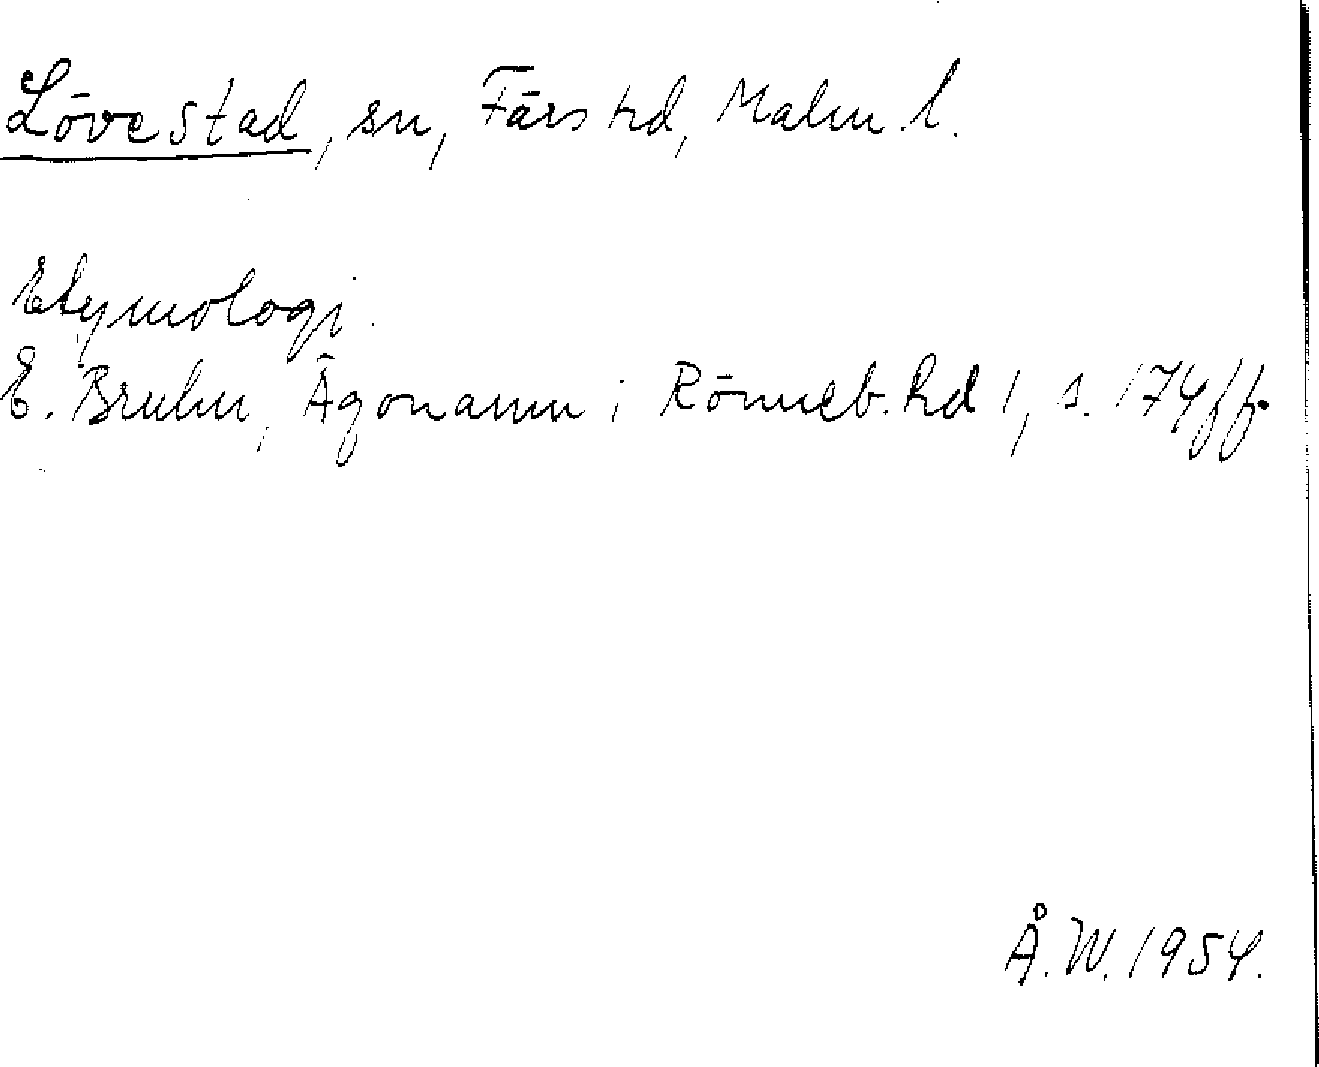 Lövestad, sn, Färs hd, Malm. l.
Etymologi.
E. Bruhn, Ägonamn i Rönneb. hd 1, s. 174 ff.
Å. W. 1954.